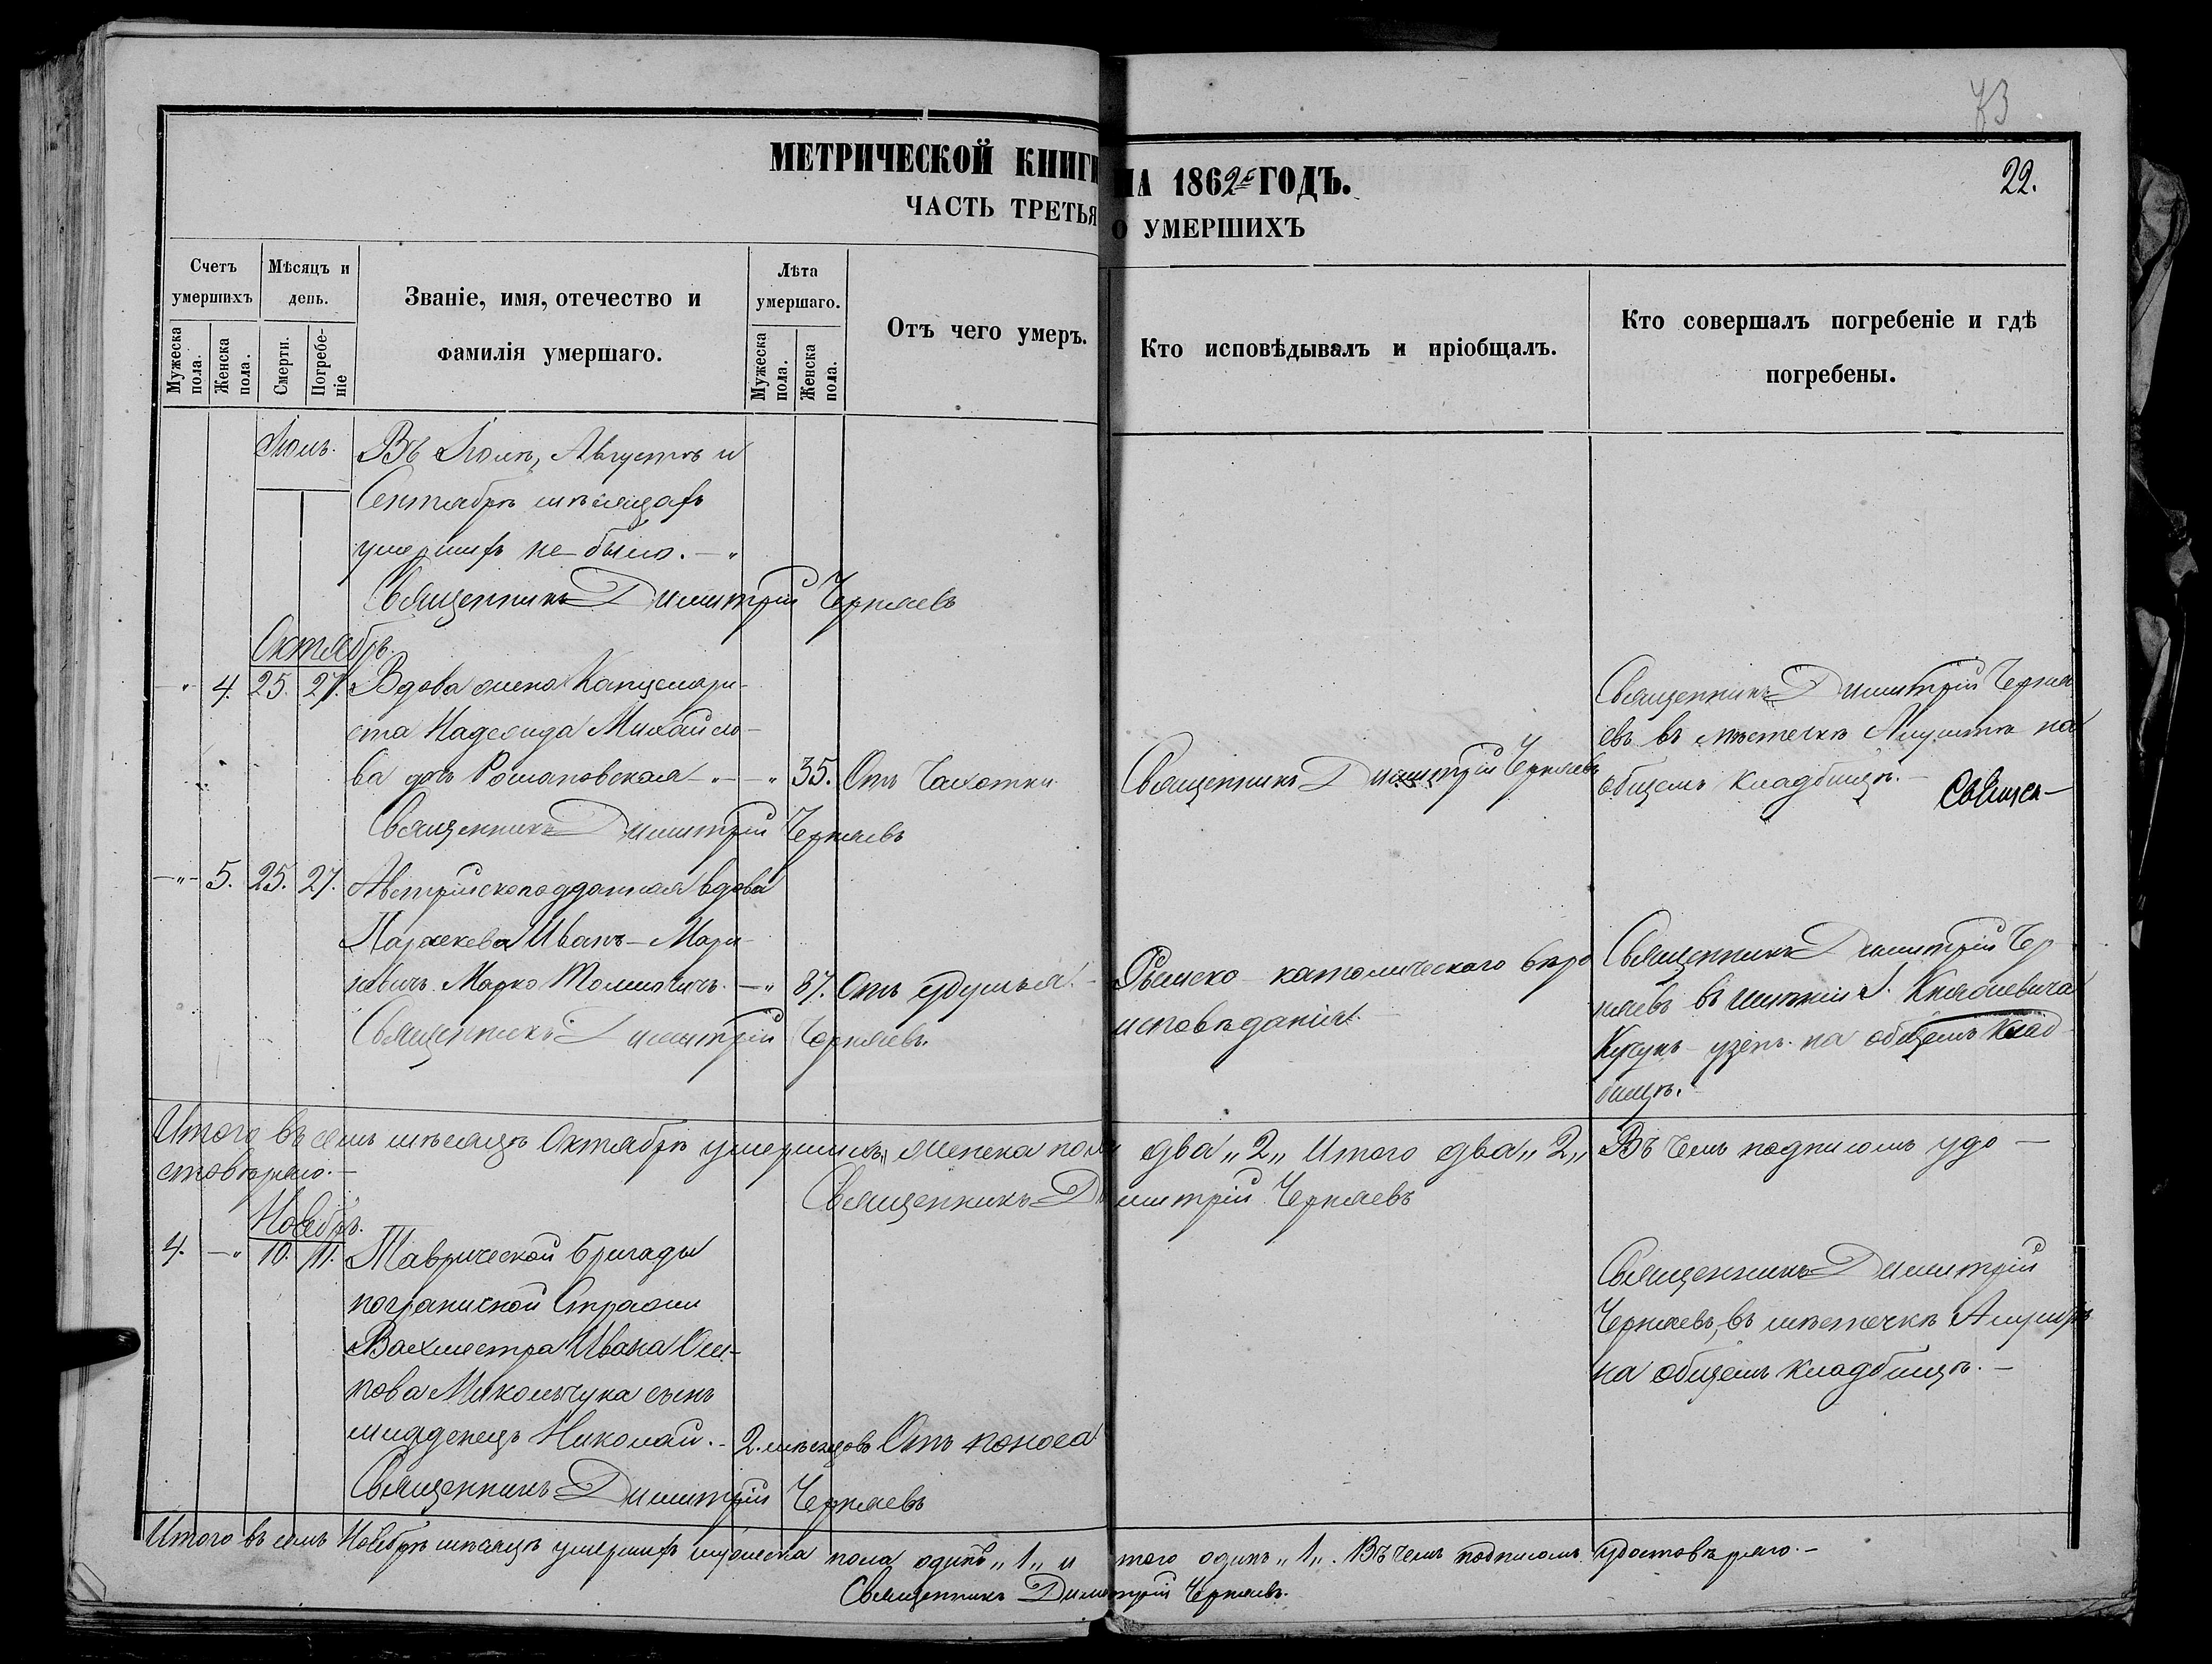 73
МЕТРИЧЕСКОЙ КНИГИ НА 1862й ГОДЪ.
22.
ЧАСТЬ ТРЕТЬЯ О УМЕРШИХЪ
Счетъ умершихъ
Мужеска пола.
Женска пола.
Мѣсяцъ и день.
Смерти.
Погребеніе
Званіе, имя, отечество и фамилія умершаго.
Лѣта умершаго.
Мужеска пола.
Женска пола.
Отъ чего умеръ.
Кто исповѣдывалъ и пріобщалъ.
Кто совершалъ погребеніе и гдѣ погребены.
Іюль.
Въ Іюлѣ, Августѣ и
Сентябрѣ мѣсяцахъ
умершихъ не было.
Священникъ Димитрій Черняевъ
Октябрь.
4. 25. 27. Вдова жена Канцеляри-
ста Надежда Михайло-
ва дочь Романовская 35. Отъ Чахотки
Священникъ Димитрій Черняевъ
Священникъ Димитрій Черняевъ
Священникъ Димитрій Черня
евъ въ мѣстечкѣ Алуштѣ на
общемъ кладбищѣ.
Священ-
5. 25. 27. Австрійскоподданная вдова
Параскева Иванъ-Мари
новичъ Марко Томиовичъ. 37. Отъ удушья.
Священникъ Димитрій Черняевъ
Римско-католическаго вѣро
исповѣданія.
Священникъ Димитрій Чер
няевъ въ имѣніи Г. Княжевича
Кучукъ-узень на общемъ клад
бищѣ.
Итого въ семъ мѣсяцѣ Октябрѣ умершихъ женска пола два „2„ Итого два „2„ Въ чемъ подписомъ удо-
стовѣряю.
Священникъ Димитрій Черняевъ
Ноябрь.
4. 10. 11. Таврической бригады
пограничной Стражи
Вахмистра Ивана Оси-
пова Микольчука сынъ
младенецъ Николай. 2. мѣсяцовъ Отъ поноса
Священникъ Димитрій Черняевъ
Священникъ Димитрій
Черняевъ, въ мѣстечкѣ Алуштѣ
на общемъ кладбищѣ.
Итого въ семъ Ноябрѣ мѣсяцѣ умершихъ мужеска пола одинъ „1„ итого одинъ „1„. Въ чемъ подписомъ удостовѣряю.
Священникъ Димитрій Черняевъ.